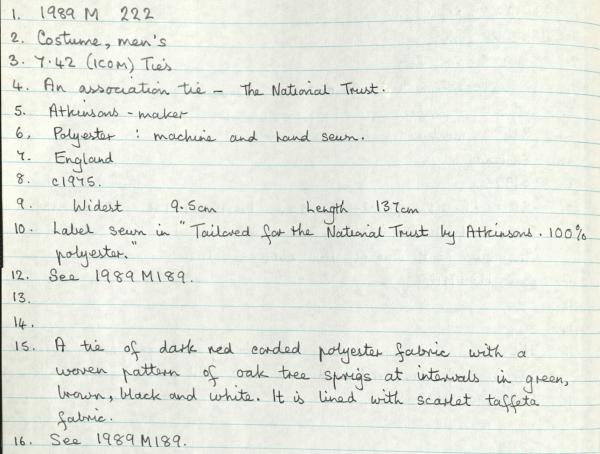 1. 1989 M 222
2. Costume, men's
3. 7.42 (ICOM) Ties
4. An association tie – The National Trust.
5. Atkinsons - maker
6. Polyester : machine and hand sewn.
7. England
8. c1975.
9. Widest 9.5cm Length 137cm
10. Label sewn in "Tailored for the National Trust by Atkinsons. 100%
polyester."
12. See 1989 M189.
13.
14.
15. A tie of dark red corded polyester fabric with a
woven pattern of oak tree sprigs at intervals in green,
brown, black and white. It is lined with scarlet taffeta
fabric.
16. See 1989 M189.